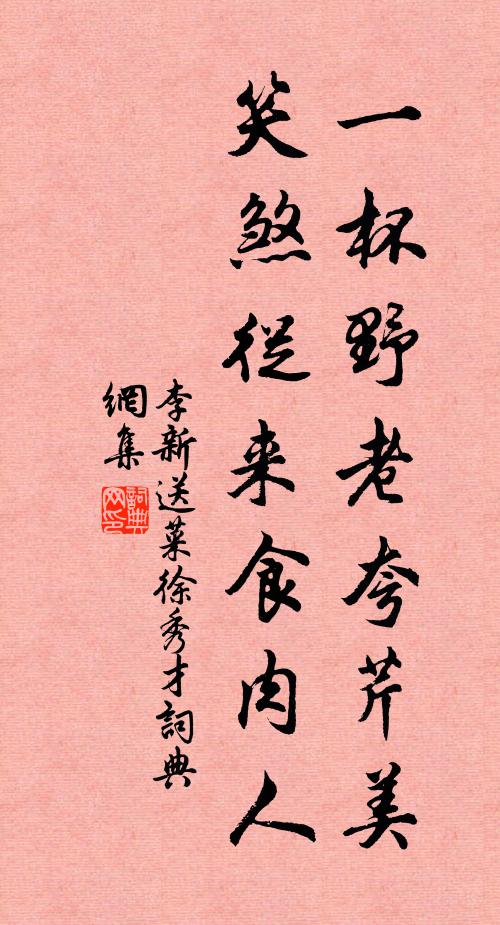 一杯野老夸芹美
笑煞從来食肉人
李新送菜徐秀才詞典
網集
詞典网印